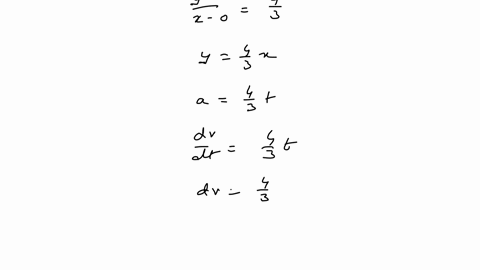 x - 0 = 4/3
y = 4/3 x
a = 4/3 t
dv/dt = 4/3 t
dv = 4/3